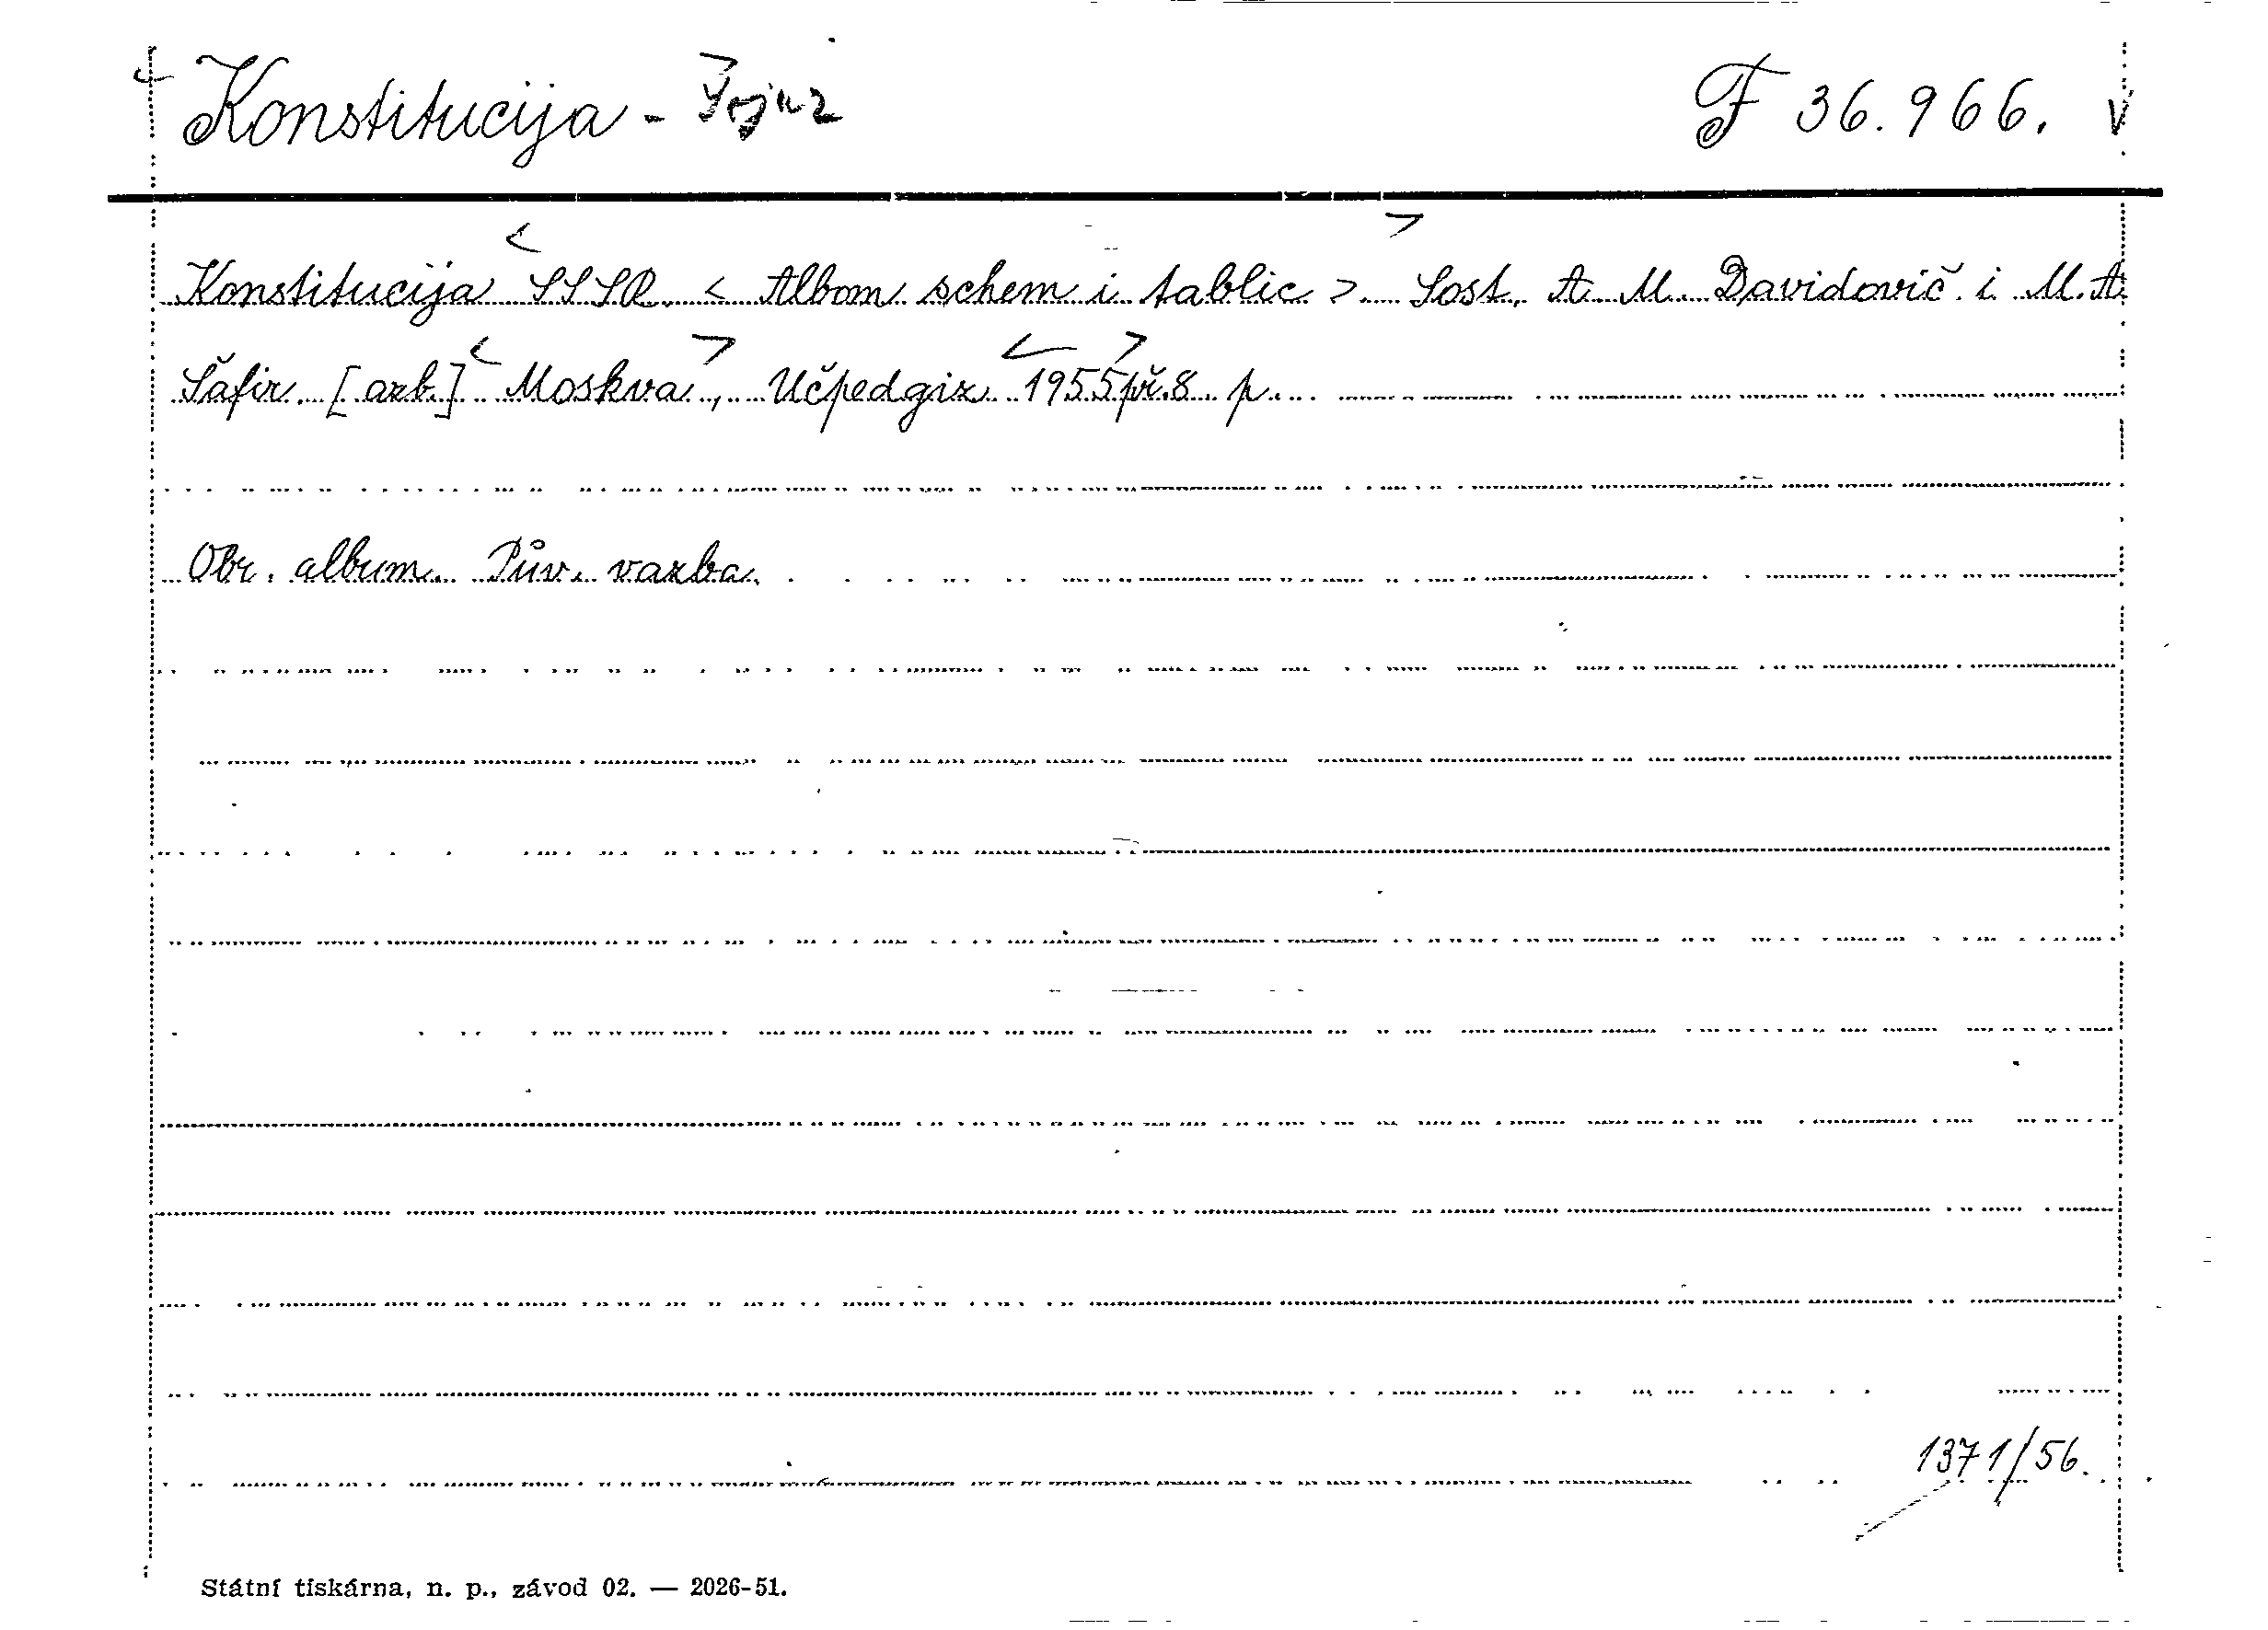 Konstitucija - F 36.966. v
Konstitucija SSSR. < Albom schem i tablic > Sost. A. M. Davidovič i M. A.
Šafir. [azb.] Moskva, Učpedgiz 1955 př. 8 p.
Obr. album. Pův. vazba.
1371/56.
Státní tiskárna, n. p., závod 02. — 2026-51.